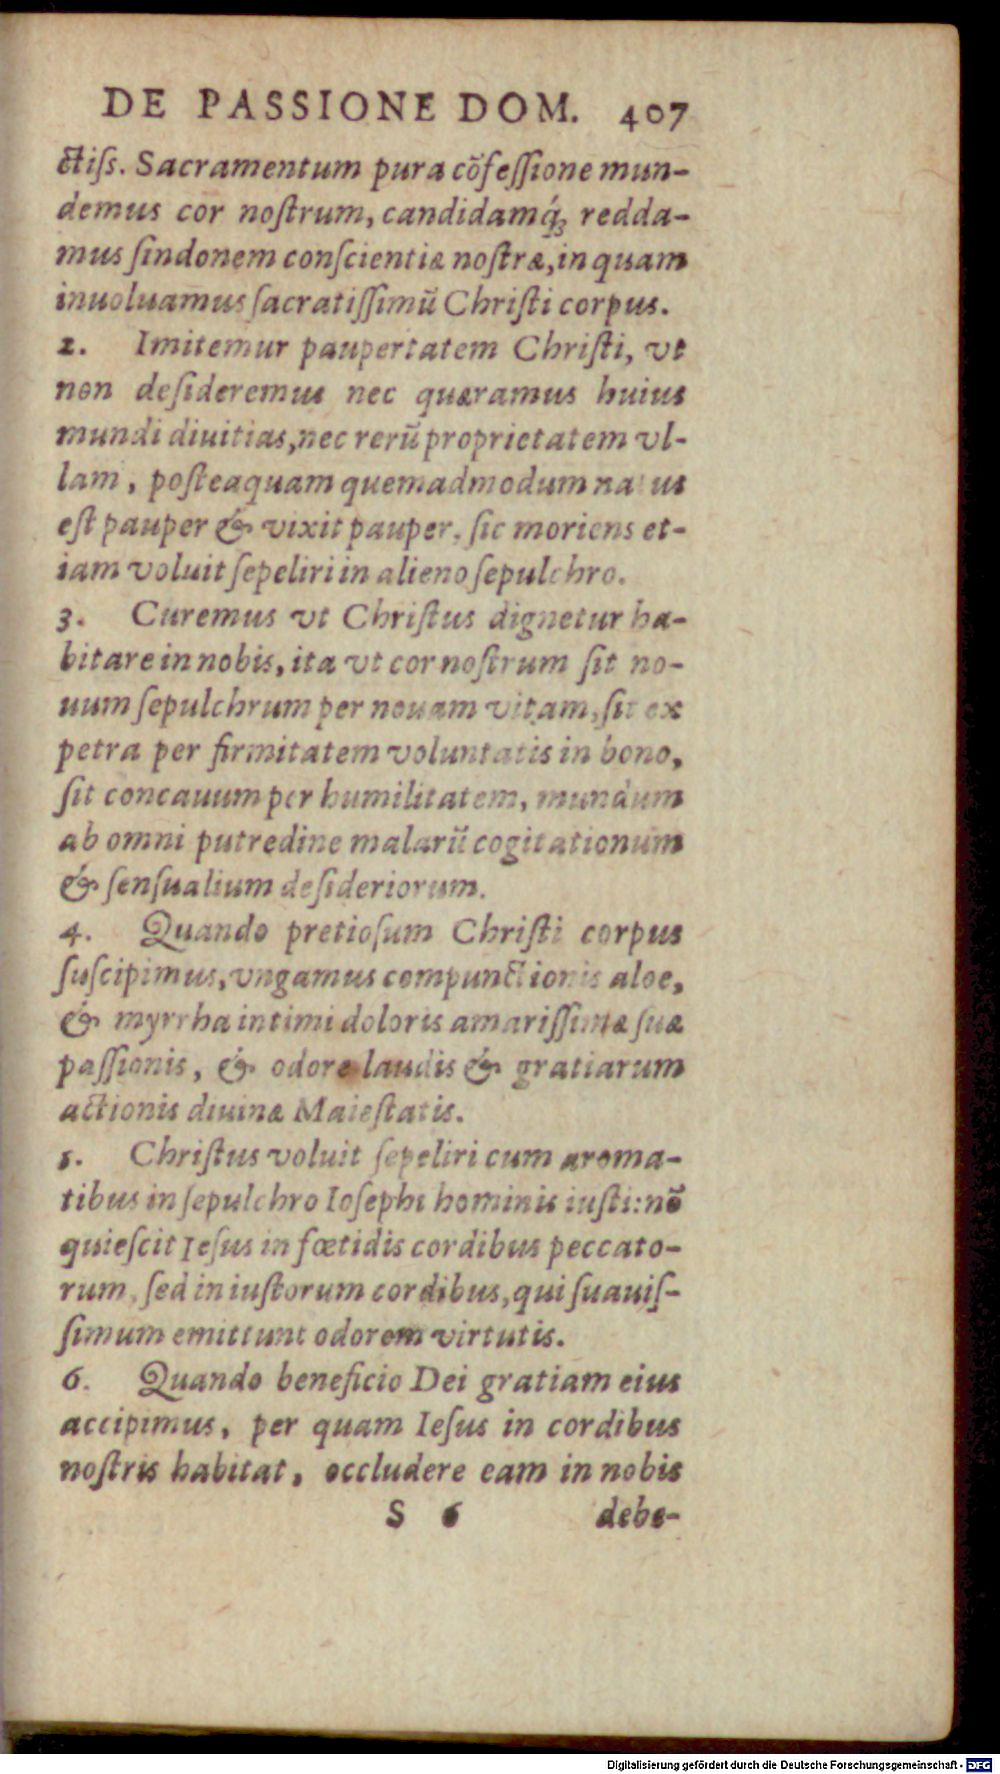 DE PASSIONE DOM. 407
ctiſs. Sacramentum pura cõfeſſione mun-
demus cor noſtrum, candidamq́; redda-
mus ſindonem conſcientiæ noſtræ, in quam
inuoluamus ſacratiſſimũ Chriſti corpus.
2. Imitemur paupertatem Chriſti, vt
non deſideremus nec quæramus huius
mundi diuitias, nec rerũ proprietatem vl-
lam, poſteaquam quemadmodum natus
eſt pauper & vixit pauper, ſic moriens et-
iam voluit ſepeliri in alieno ſepulchro.
3. Curemus vt Chriſtus dignetur ha-
bitare in nobis, ita vt cor noſtrum ſit no-
uum ſepulchrum per nouam vitam, ſit ex
petra per firmitatem voluntatis in bono,
ſit concauum per humilitatem, mundum
ab omni putredine malarũ cogitationum
& ſenſualium deſideriorum.
4. Quando pretioſum Chriſti corpus
ſuſcipimus, vngamus compunctionis aloe,
& myrrha intimi doloris amariſſimæ ſuæ
paſſionis, & odore laudis & gratiarum
actionis diuinæ Maieſtatis.
5. Chriſtus voluit ſepeliri cum aroma-
tibus in ſepulchro Ioſephi hominis iuſti: nõ
quieſcit Ieſus in fœtidis cordibus peccato-
rum, ſed in iuſtorum cordibus, qui ſuauiſ-
ſimum emittunt odorem virtutis.
6. Quando beneficio Dei gratiam eius
accipimus, per quam Ieſus in cordibus
noſtris habitat, occludere eam in nobis
S 6 debe-
Digitalisierung gefördert durch die Deutsche Forschungsgemeinschaft - DFG